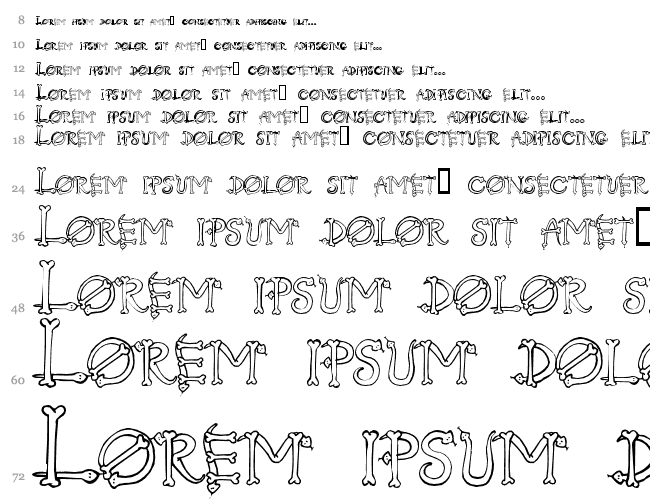 8 Lorem ipsum dolor sit amet▯ consectetuer adipiscing elit...
10 Lorem ipsum dolor sit amet▯ consectetuer adipiscing elit...
12 Lorem ipsum dolor sit amet▯ consectetuer adipiscing elit...
14 Lorem ipsum dolor sit amet▯ consectetuer adipiscing elit...
16 Lorem ipsum dolor sit amet▯ consectetuer adipiscing elit...
18 Lorem ipsum dolor sit amet▯ consectetuer adipiscing elit
24 Lorem ipsum dolor sit amet▯ consectetuer
36 Lorem ipsum dolor sit amet▯
48 Lorem ipsum dolor s
60 Lorem ipsum dolo
72 Lorem ipsum d